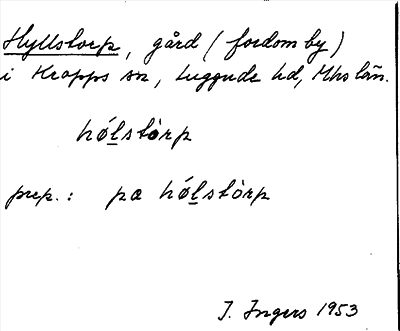 Hyllstorp, gård (fordom by)
i Kropps sn, Luggude hd, Mhs län.
hǿlstòrp
prep.: pa hǿlstòrp
I. Ingers 1953